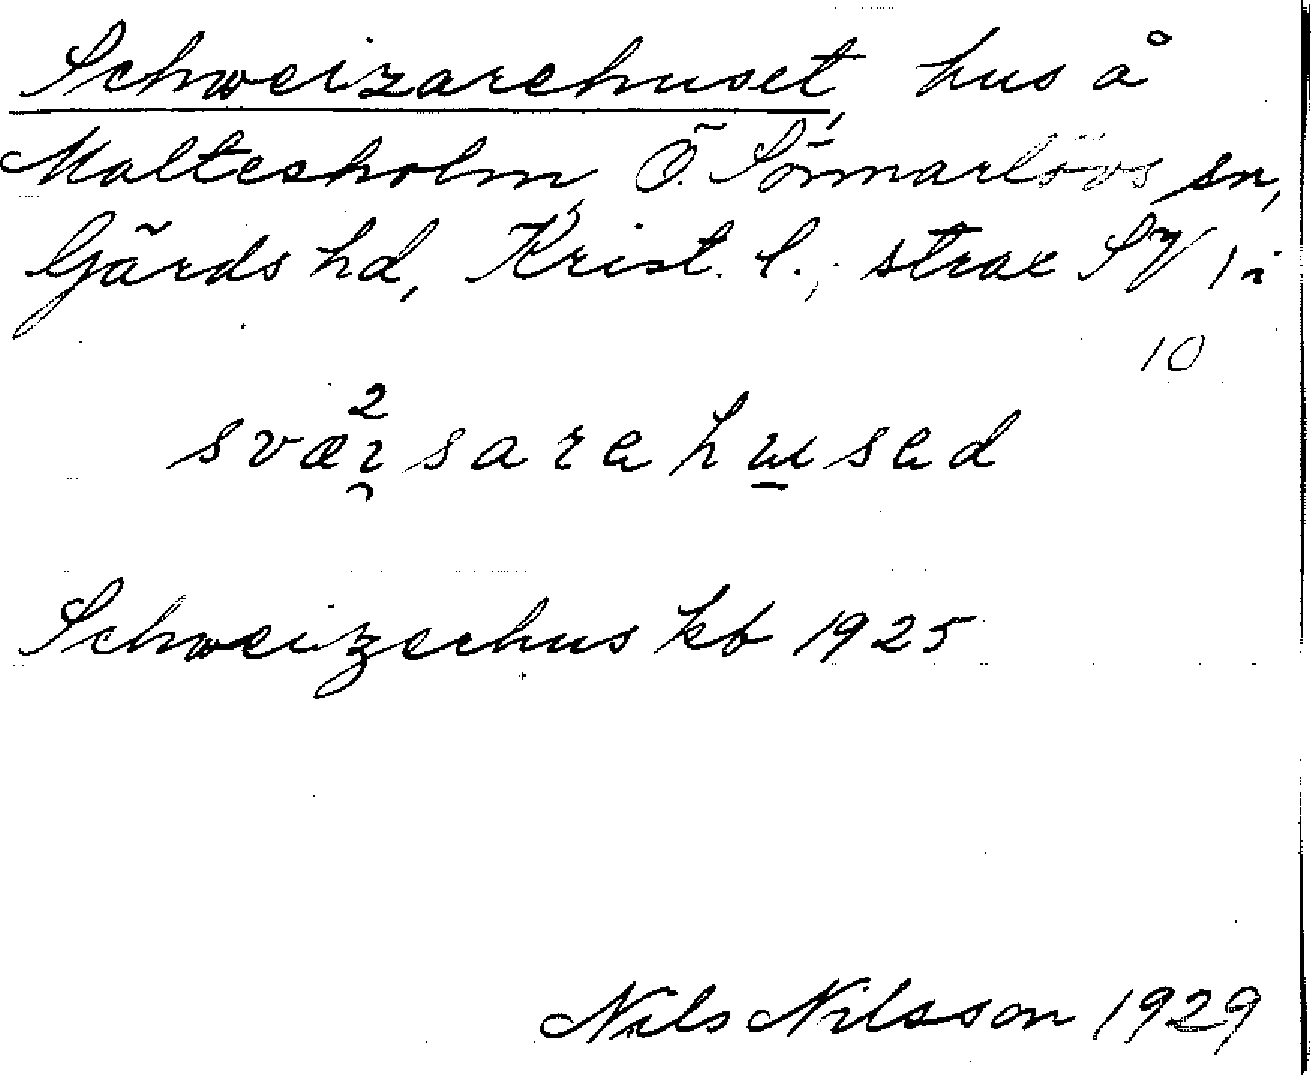 Schweizarehuset, hus å
Maltesholm, Ö. Sönnarlövs sn,
Gärds hd, Krist. l., strax SV 1 i
10
2
sværsarehused
Schweizerhus kb 1925
Nils Nilsson 1929